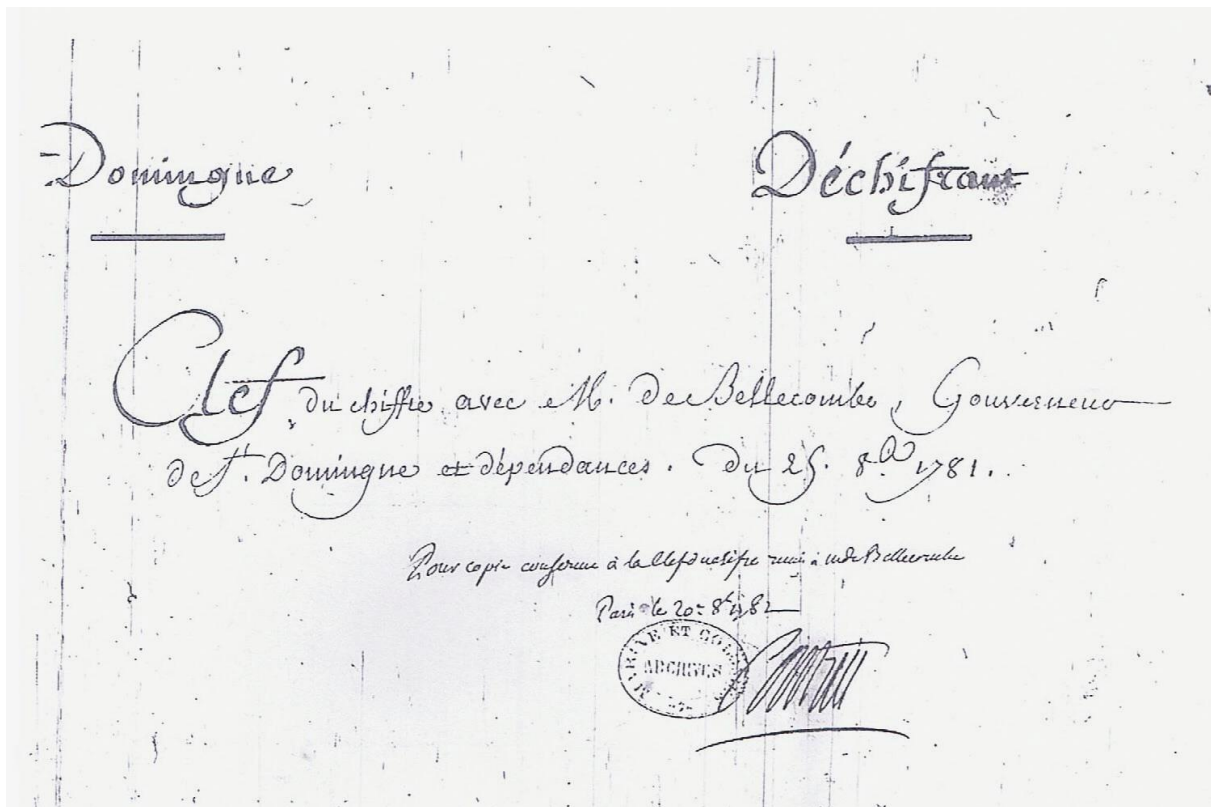 Domingue
Déchifrant
Clef du chiffre avec M. de Bellecombe, Gouverneur
de St. Domingue et dépendances. Du 25. 8.bre 1781.
Pour copie conforme à la Clef du chifre remis à m de Bellecombe
Paris le 20 8bre 1781
MARINE ET COLONIES
ARCHIVES